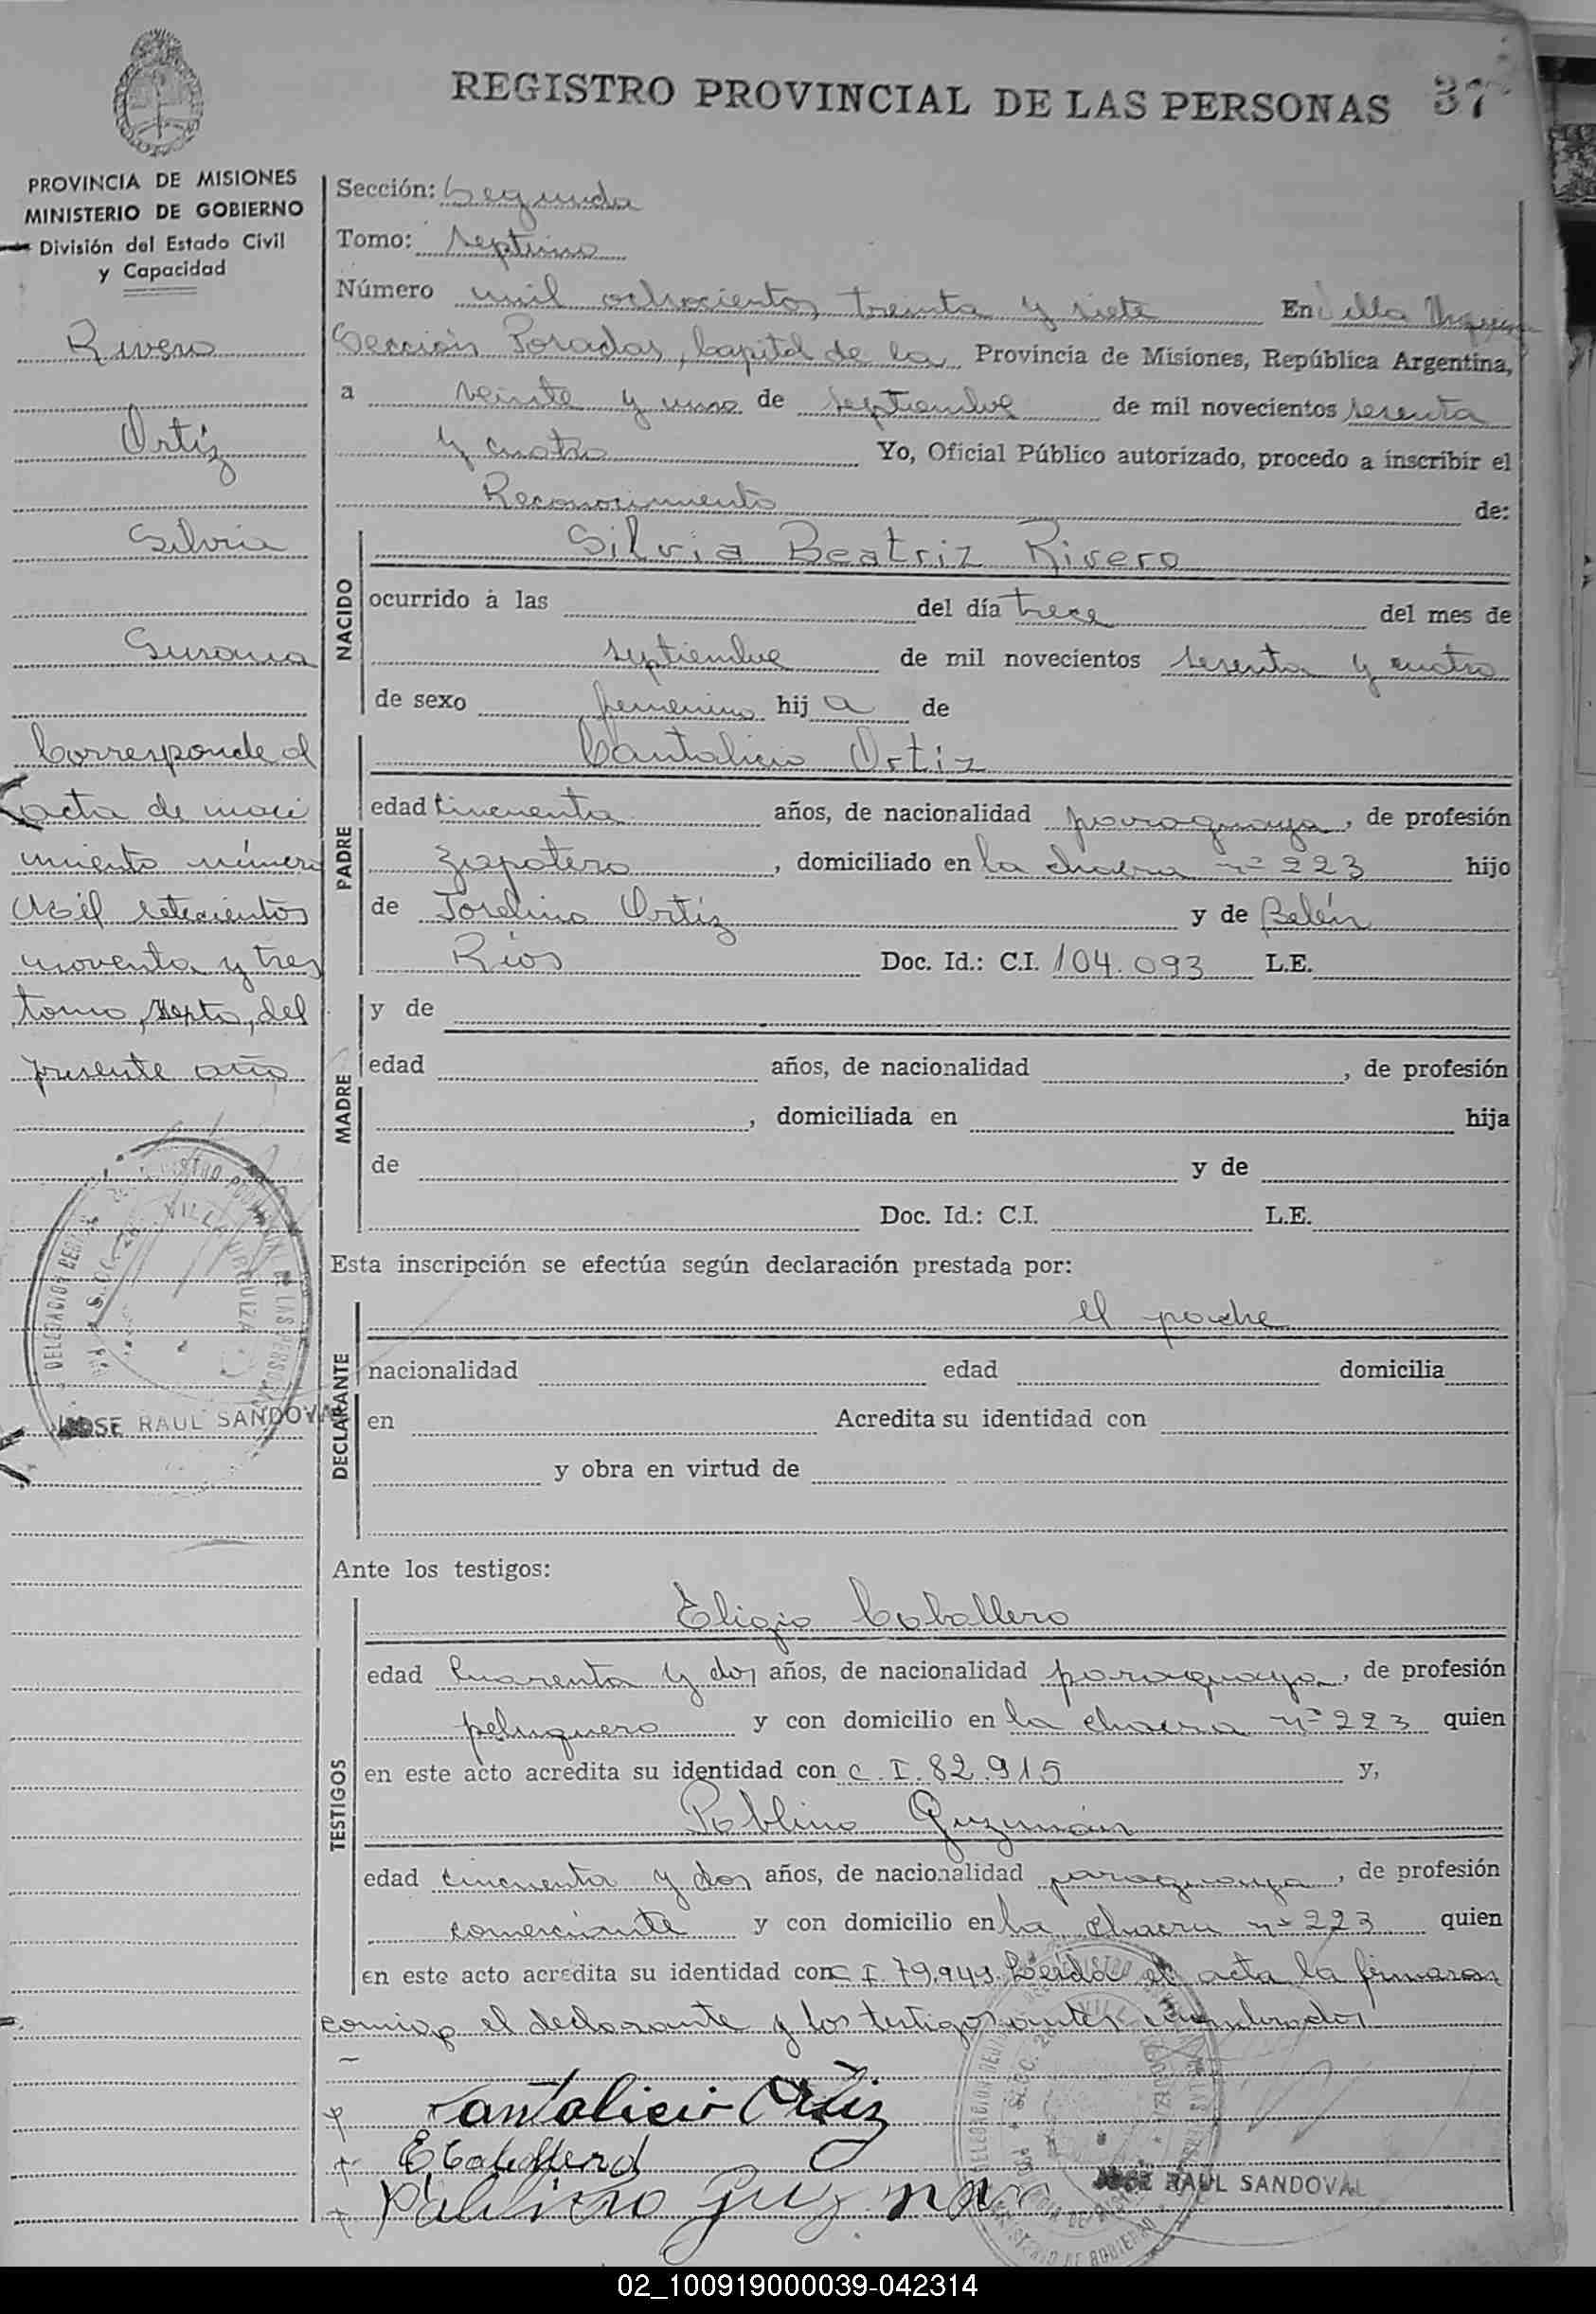 REGISTRO PROVINCIAL DE LAS PERSONAS 37
PROVINCIA DE MISIONES
MINISTERIO DE GOBIERNO
División del Estado Civil
y Capacidad
Rivero
Ortíz
Silvia
Susana
Corresponde al
acta de naci
miento número
Mil setecientos
noventa y tres
tomo, sexto, del
presente año
JOSE RAUL SANDOVAL
Sección: Segunda
Tomo: septimo
Número mil ochocientos treinta y siete En Villa Urquiza
Sección Posadas, Capital de la Provincia de Misiones, República Argentina,
a veinte y uno de septiembre de mil novecientos sesenta
y cuatro Yo, Oficial Público autorizado, procedo a inscribir el
Reconocimiento de:
NACIDO
Silvia Beatriz Rivero
ocurrido a las del día trece del mes de
septiembre de mil novecientos sesenta y cuatro
de sexo femenino hij a de
PADRE
Cantalicio Ortiz
edad Cincuenta años, de nacionalidad paraguaya, de profesión
zapatero, domiciliado en la chacra nº 223 hijo
de Joselino Ortíz y de Belén
Ríos Doc. Id.: C.I. 104.093 L.E.
MADRE
y de
edad años, de nacionalidad , de profesión
, domiciliada en hija
de y de
Doc. Id.: C.I. L.E.
Esta inscripción se efectúa según declaración prestada por:
DECLARANTE
el padre
nacionalidad edad domicilia
en Acredita su identidad con
y obra en virtud de
Ante los testigos:
TESTIGOS
Eligio Caballero
edad Cuarenta y dos años, de nacionalidad paraguaya, de profesión
peluquero y con domicilio en la chacra nº 223 quien
en este acto acredita su identidad con C.I. 82.915 y,
Poblino Guzmán
edad cincuenta y dos años, de nacionalidad paraguaya, de profesión
comerciante y con domicilio en la chacra nº 223 quien
en este acto acredita su identidad con C.I. 79.943. Leida el acta la firmaron
conmigo el declarante y los testigos antes nombrados
Cantalicio Ortiz
E Caballero
Pablino Guzman
JOSE RAUL SANDOVAL
02_100919000039-042314